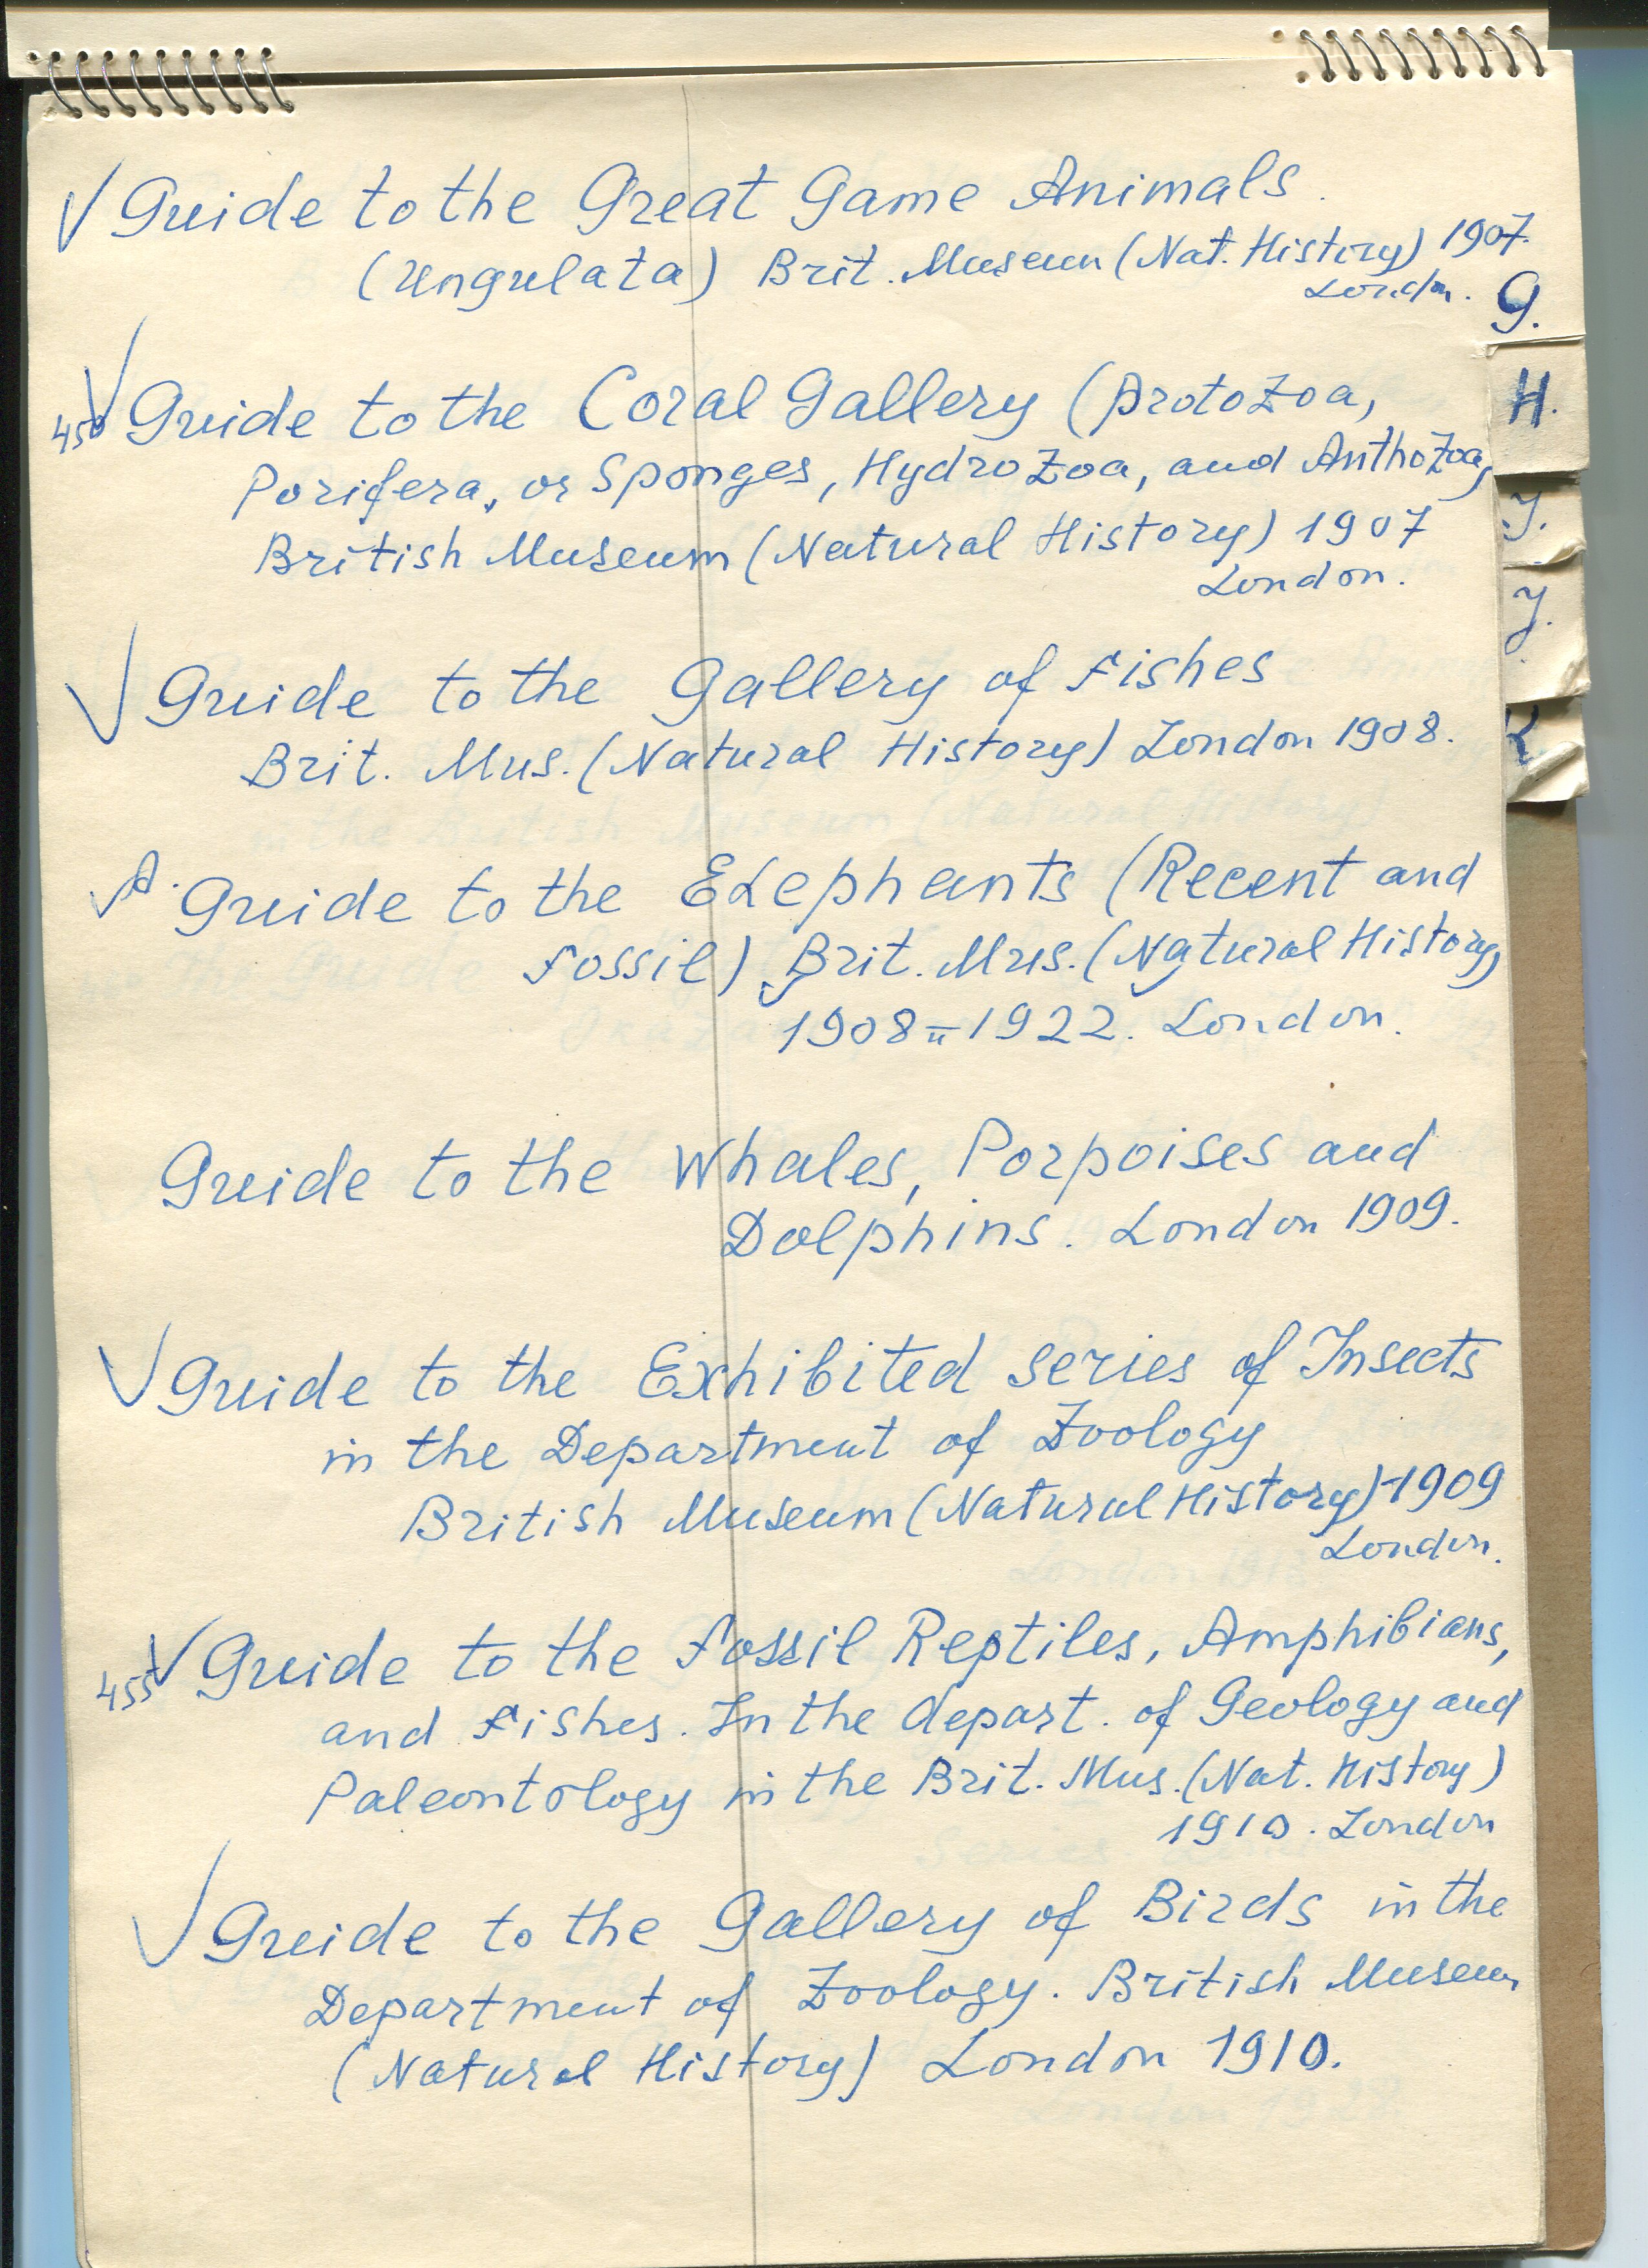 √ Guide to the Great Game Animals.
(Ungulata) Brit. Museum (Nat. History) 1907.
London.
G.
450 √ Guide to the Coral Gallery (Protozoa,
Porifera, or Sponges, HydroZoa, and AnthoZoa,
British Museum (Natural History) 1907
London.
H.
J.
J.
K
√ Guide to the Gallery of Fishes
Brit. Mus. (Natural History) London 1908.
√ A. Guide to the Elephants (Recent and
Fossil) Brit. Mus. (Natural History,
1908 и -1922. London.
Guide to the Whales, Porpoises and
Dolphins. London 1909.
√ Guide to the Exhibited series of Insects
in the Department of Zoology
British Museum (Natural History)-1909
London.
455 √ Guide to the Fossil Reptiles, Amphibians,
and Fishes. In the depart. of Geology and
Paleontology in the Brit. Mus. (Nat. History)
1910. London
√ Guide to the Gallery of Birds in the
Department of Zoology. British Museum
(Natural History) London 1910.